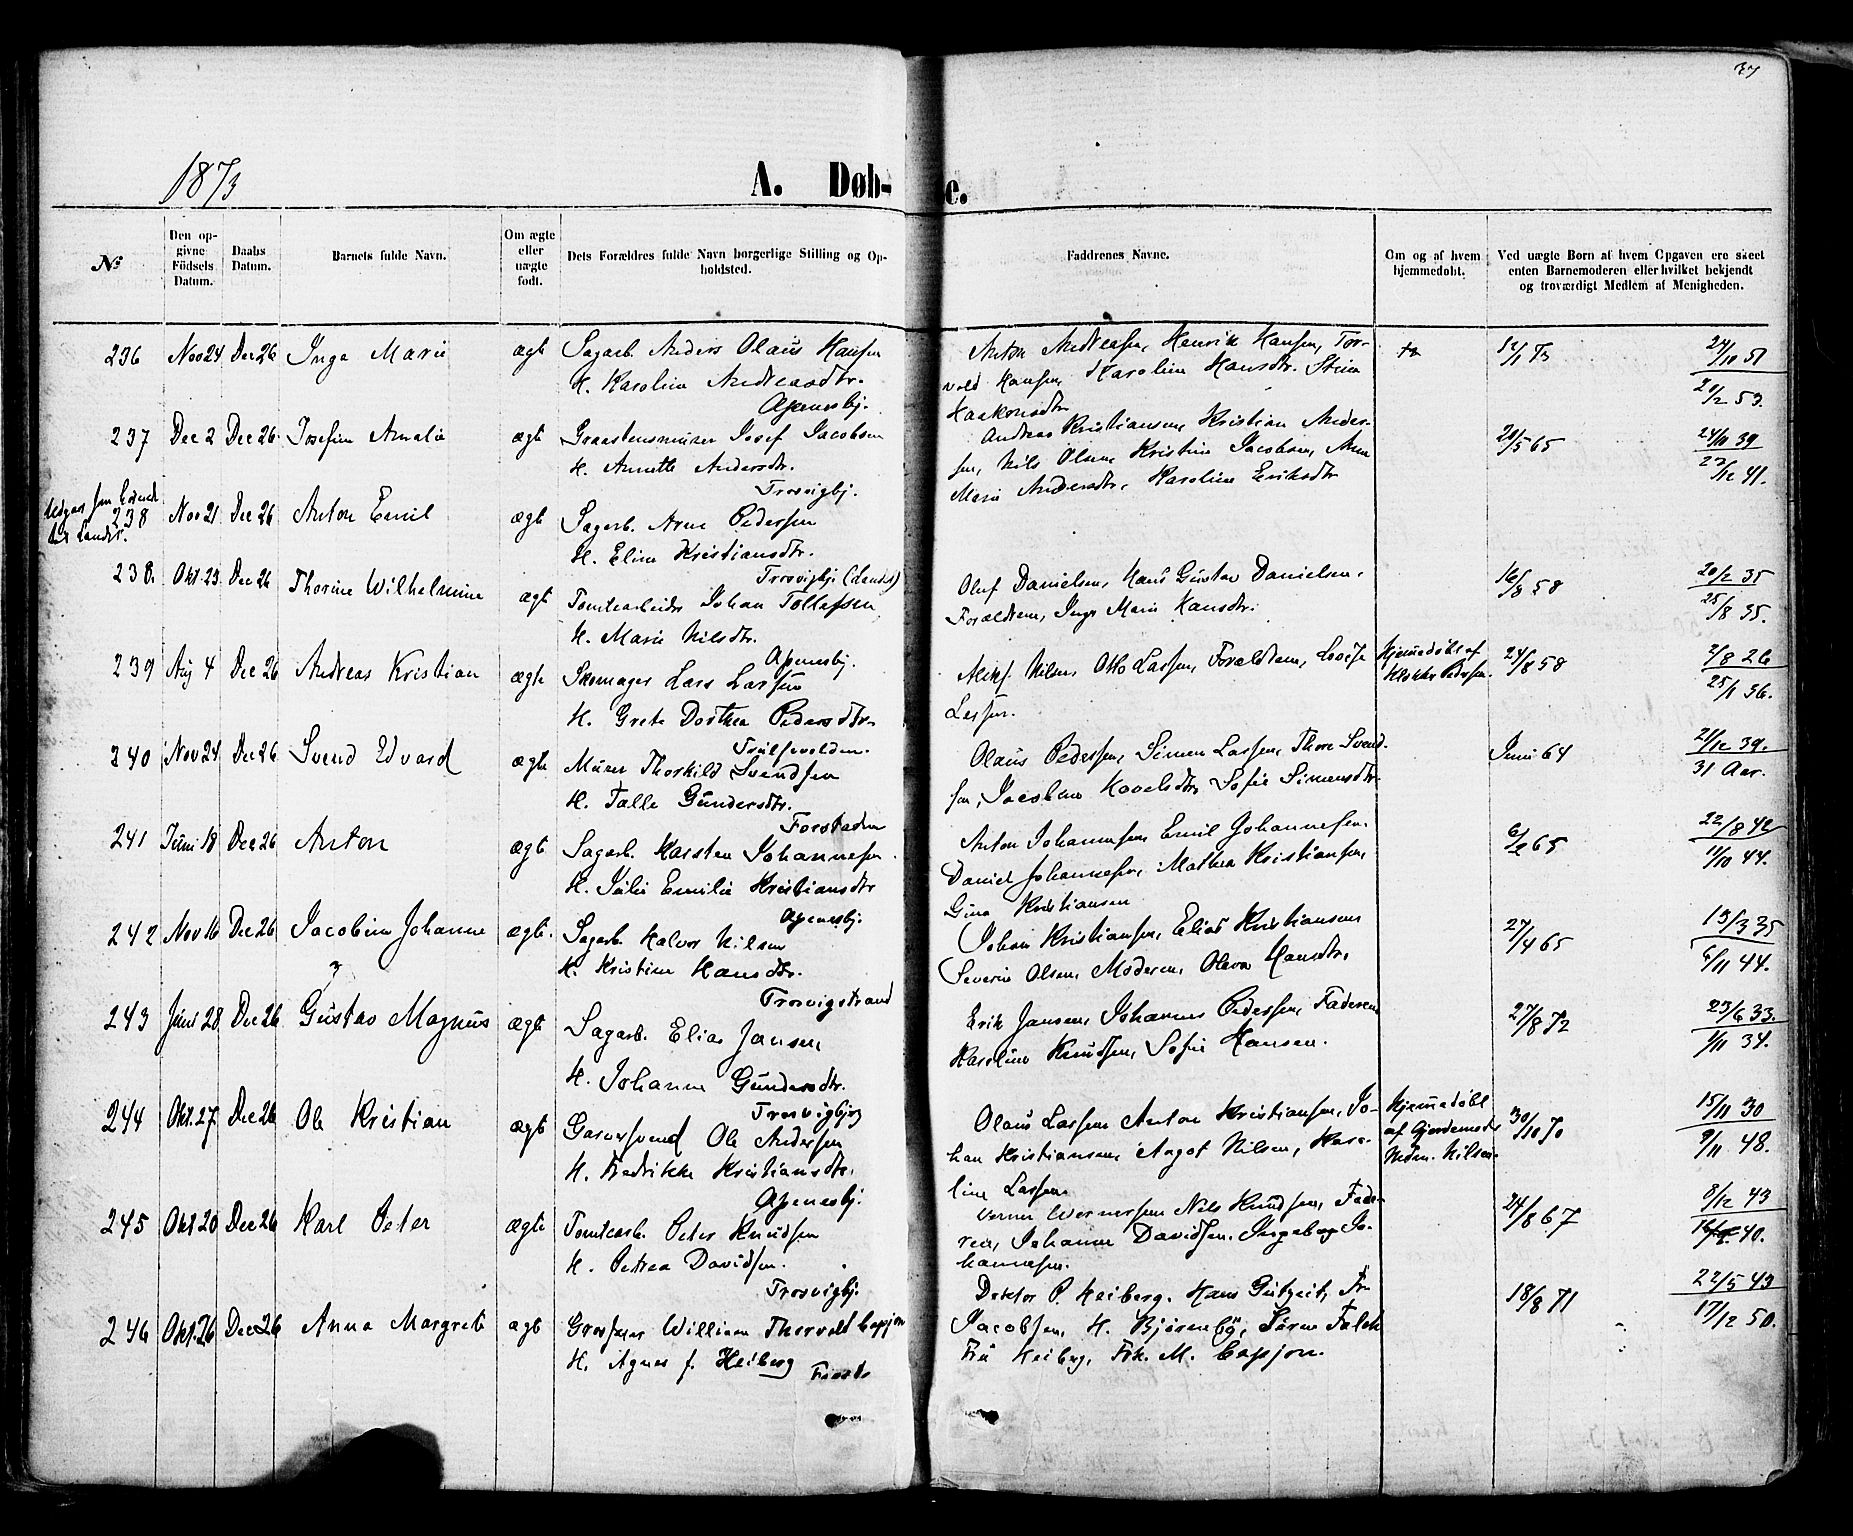 37
1873
A. Døb-e.
No
Den opgivne Födsels Datum.
Daabs Datum.
Barnets fulde Navn.
Om ægte eller uægte født.
Dets Forældres fulde Navn borgerlige Stilling og Opholdsted.
Faddrenes Navne.
Om og af hvem hjemmedøbt.
Ved uægte Børn af hvem Opgaven ere skeet enten Barnemoderen eller hvilket bekjendt og troværdigt Medlem af Menigheden.
236 Nov 24 Dec 26 Inga Marie ægt Sagarb. Anders Olaus Hansen Anton Andreasen, Henrik Hansen, Tor- 12/1 73 24/10 51
H. Karoline Andreasdtr. vold Hansen, Karoline Hansdtr. Stina 20/2 53.
Apenesbj. Haakonsdtr
237 Dec 2 Dec 26 Josefine Amalie ægt Graastensmurer Josef Jacobsen Andreas Kristiansen, Kristian Ander- 20/5 65 24/11 39
H. Annette Andersdtr. sen, Nils Olsen, Kristine Jacobsen, Anne 27/12 41.
Trosvigbj. Marie Andersdtr, Karoline Eriksdtr
238 Nov 21 Dec 26 Anton Emil ægt Sagarb. Arne Pedersen
H. Eline Kristiansdtr.
Trosvigbj.
238. Okt. 23 Dec 26 Thorine Wilhelmine ægt Tomtearbeider Johan Tollefsen Oluf Danielsen, Hans Gustav Danielsen, 16/8 58 20/2 35
H. Marie Nilsdtr. Forældrene, Inge Marie Hansdtr. 25/8 35.
Apenesbj.
239 Aug 4 Dec 26 Andreas Kristian ægte Skomager Lars Larsen Nilsen, Otto Larsen, Forældrene, Lovise Hjemmedøbt af 24/8 58 2/8 26
H. Grete Dorthea Pedersdtr. Larsen. Klokker Pedersen. 25/1 36.
240 Nov 24 Dec 26 Svend Edvard ægte Murer Thorkild Svendsen Olaus Pedersen, Simen Larsen, Thore Svend- Juni 64 21/12 39.
H. Talle Gundersdtr. sen, Jacobine Sofie Simensdtr 31 Aar.
Forstaden
241 Juni 18 Dec 26 Anton ægt Sagarb. Karsten Johannesen Anton Johannesen, Emil Johannesen. 6/2 65 22/8 42
H. Julie Emilie Kristiansdtr Daniel Johannesen, Mathea Kristiansen, 11/10 44.
Apenesbj. Gina Kristiansen
242 Nov 16 Dec 26 Jacobine Johanne ægt. Sagarb. Halvor Nilsen Johan Kristiansen, Elias Kristiansen 27/4 65 13/3 35
H. Kristine Hansdtr. Severin Olsen, Moderen, Oleva Hansdtr, 6/11 44.
Trosvigstrand
243 Juni 28 Dec 26 Gustav Magnus ægt Sagarb. Elias Jansen, Erik Jansen, Johannes Pedersen, Faderen 27/8 72 23/6 33.
H. Johanne Gundersdtr. Karoline Knudsen, Sofie Hansen. 1/11 34.
Trosvigbjrg
244 Okt. 27 Dec 26 Ole Kristian ægt Garversvend Ole Andersen Olaus Larsen Anton Kristiansen, Jo- Hjemmedøbt 30/10 70 15/11 30
H. Fredrikke Kristiansdtr. han Kristiansen, Nilsen, Karo- af Gjordemoder 9/11 48.
Apenesbj. line Larsen Nilsen.
245 Okt 20 Dec 26 Karl Peter ægte Tomtearb. Peter Knudsen Verner Wernersen Nils Knudsen, Fade- 24/8 67 8/12 43
H. Petrea Davidsen. ren, Johanne Davidsen. Ingeborg Jo- 40.
Trosvigbj. hannesen.
246 Okt. 26 Dec 26 Anna Margrete ægt Grosserer William Thorvald Capjon Doktor P. Heiberg. Hans Gutzeit, Fr 18/8 71 22/5 43
H. Agnes f. Heiberg Jacobsen, H. Bjørneby, Sørine Falck 17/12 50.
Fru Heiberg, Frk. M. Capjon.